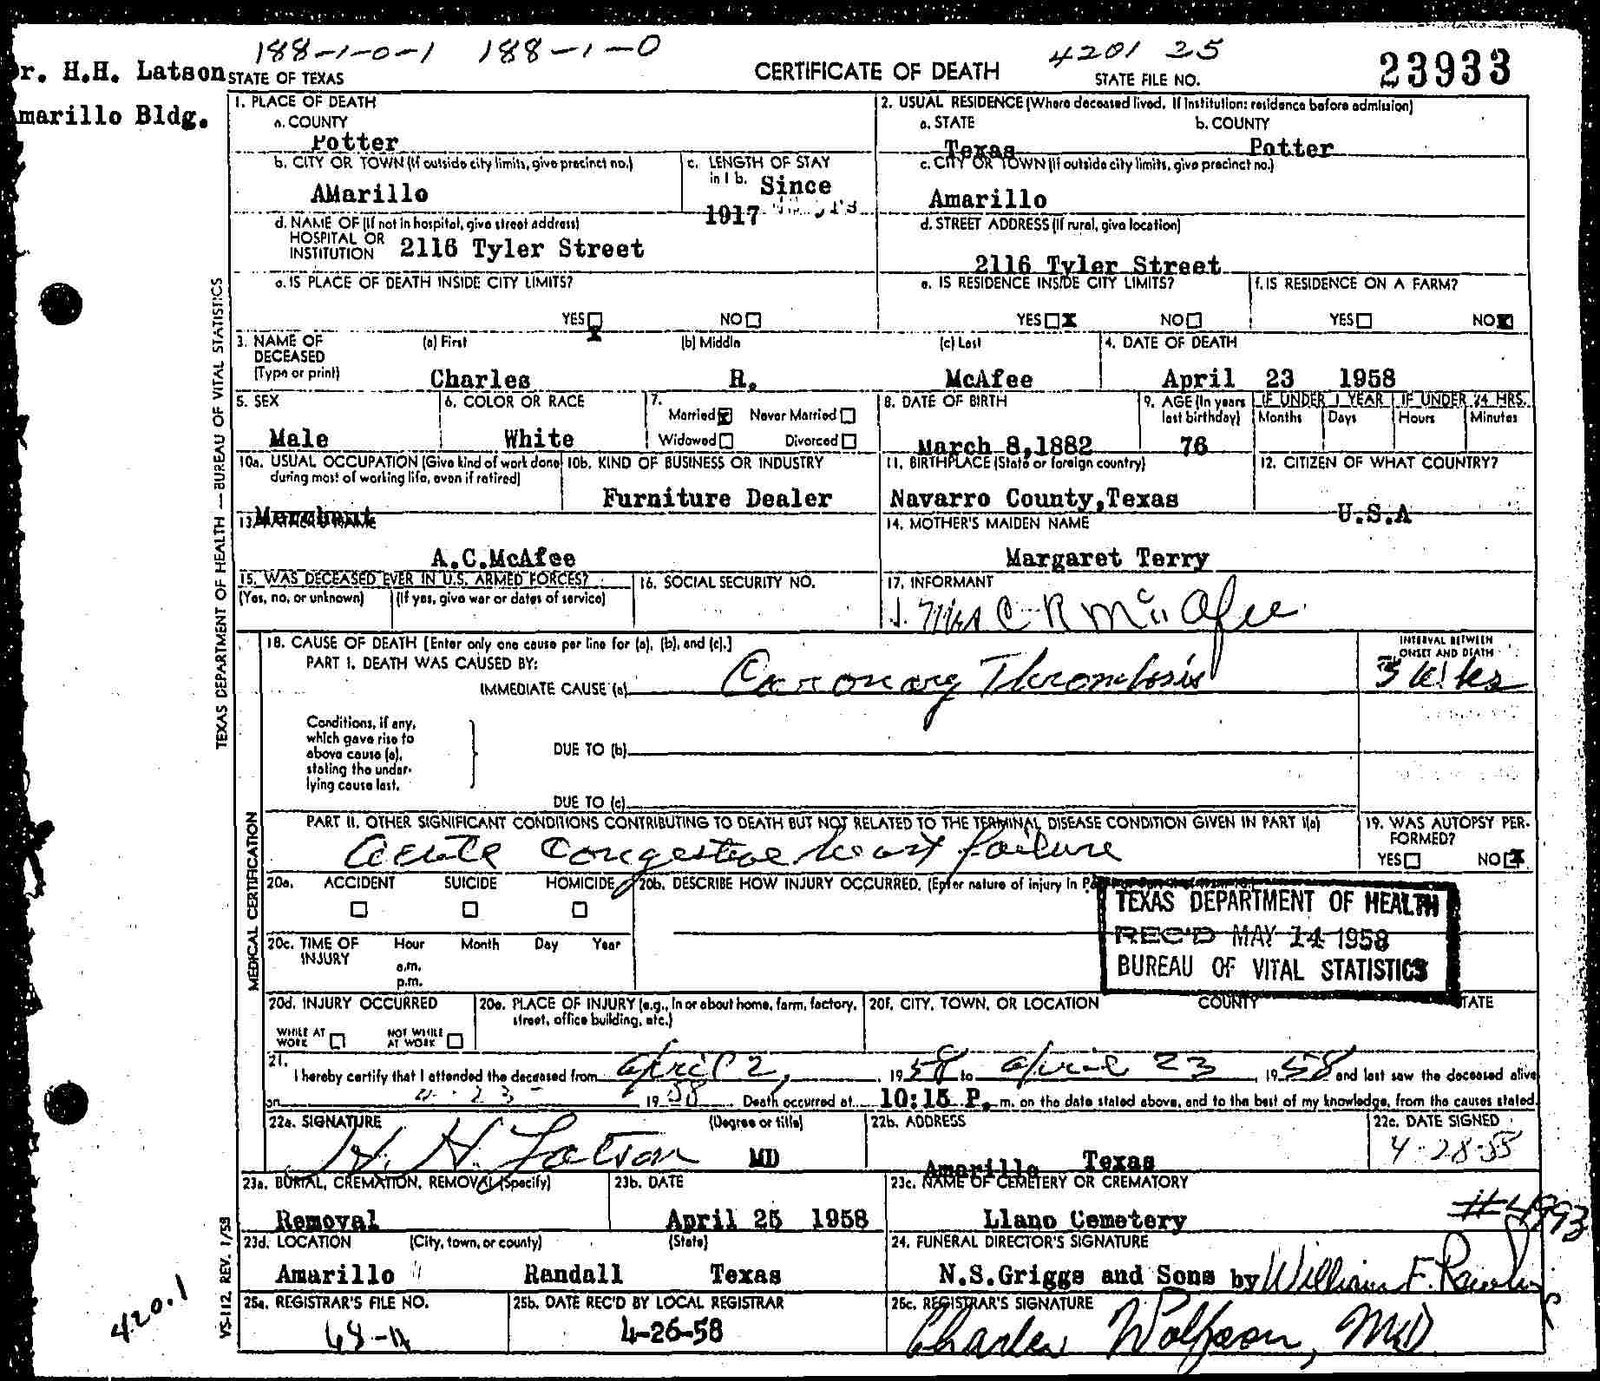 188-1-0-1 188-1-0 4201 25
r. H.H. Latson STATE OF TEXAS CERTIFICATE OF DEATH STATE FILE NO. 23933
marillo Bldg.
1. PLACE OF DEATH
a. COUNTY
Potter
2. USUAL RESIDENCE (Where deceased lived. If institution: residence before admission)
a. STATE b. COUNTY
Texas Potter
b. CITY OR TOWN (If outside city limits, give precinct no.)
AMarillo
c. LENGTH OF STAY
in 1 b. Since
1917
c. CITY OR TOWN (If outside city limits, give precinct no.)
Amarillo
d. NAME OF (If not in hospital, give street address)
HOSPITAL OR
INSTITUTION 2116 Tyler Street
d. STREET ADDRESS (If rural, give location)
2116 Tyler Street
e. IS PLACE OF DEATH INSIDE CITY LIMITS?
YES X NO
e. IS RESIDENCE INSIDE CITY LIMITS?
YES X NO
f. IS RESIDENCE ON A FARM?
YES NO X
3. NAME OF
DECEASED
(Type or print)
(a) First (b) Middle (c) Last
Charles R. McAfee
4. DATE OF DEATH
April 23 1958
5. SEX
Male
6. COLOR OR RACE
White
7.
Married X Never Married
Widowed Divorced
8. DATE OF BIRTH
March 8,1882
9. AGE (In years
last birthday)
76
IF UNDER 1 YEAR IF UNDER 24 HRS.
Months Days Hours Minutes
10a. USUAL OCCUPATION (Give kind of work done
during most of working life, even if retired)
Merchant
10b. KIND OF BUSINESS OR INDUSTRY
Furniture Dealer
11. BIRTHPLACE (State or foreign country)
Navarro County,Texas
12. CITIZEN OF WHAT COUNTRY?
U.S.A
13.
A.C.McAfee
14. MOTHER'S MAIDEN NAME
Margaret Terry
15. WAS DECEASED EVER IN U.S. ARMED FORCES?
(Yes, no, or unknown) (If yes, give war or dates of service)
16. SOCIAL SECURITY NO.
17. INFORMANT
Mrs C R McAfee
18. CAUSE OF DEATH [Enter only one cause per line for (a), (b), and (c).]
PART I. DEATH WAS CAUSED BY:
IMMEDIATE CAUSE (a) Coronary Thrombosis
INTERVAL BETWEEN
ONSET AND DEATH
3 wks
Conditions, if any,
which gave rise to
above cause (a),
stating the under-
lying cause last.
DUE TO (b)
DUE TO (c)
PART II. OTHER SIGNIFICANT CONDITIONS CONTRIBUTING TO DEATH BUT NOT RELATED TO THE TERMINAL DISEASE CONDITION GIVEN IN PART I(a)
acute Congestive heart failure
19. WAS AUTOPSY PER-
FORMED?
YES NO X
20a. ACCIDENT SUICIDE HOMICIDE
20b. DESCRIBE HOW INJURY OCCURRED. (Enter nature of injury in
TEXAS DEPARTMENT OF HEALTH
REC'D MAY 14 1958
BUREAU OF VITAL STATISTICS
20c. TIME OF
INJURY
Hour Month Day Year
a.m.
p.m.
20d. INJURY OCCURRED
WHILE AT
WORK
NOT WHILE
AT WORK
20e. PLACE OF INJURY (e.g., in or about home, farm, factory,
street, office building, etc.)
20f. CITY, TOWN, OR LOCATION COUNTY STATE
21.
I hereby certify that I attended the deceased from april 2, 1958 to april 23 1958 and last saw the deceased alive
on 4-23- 1958 Death occurred at 10:15 P. m. on the date stated above, and to the best of my knowledge, from the causes stated.
22a. SIGNATURE (Degree or title)
H. H. Latson MD
22b. ADDRESS
Amarillo Texas
22c. DATE SIGNED
4-28-58
23a. BURIAL, CREMATION, REMOVAL (Specify)
Removal
23b. DATE
April 25 1958
23c. NAME OF CEMETERY OR CREMATORY
Llano Cemetery
#4993
23d. LOCATION (City, town, or county) (State)
Amarillo Randall Texas
24. FUNERAL DIRECTOR'S SIGNATURE
N.S.Griggs and Sons by William F.
25a. REGISTRAR'S FILE NO.
25b. DATE REC'D BY LOCAL REGISTRAR
4-26-58
25c. REGISTRAR'S SIGNATURE
Charles Wolfson, MD
TEXAS DEPARTMENT OF HEALTH — BUREAU OF VITAL STATISTICS
MEDICAL CERTIFICATION
VS-112 REV. 1/58
420.1